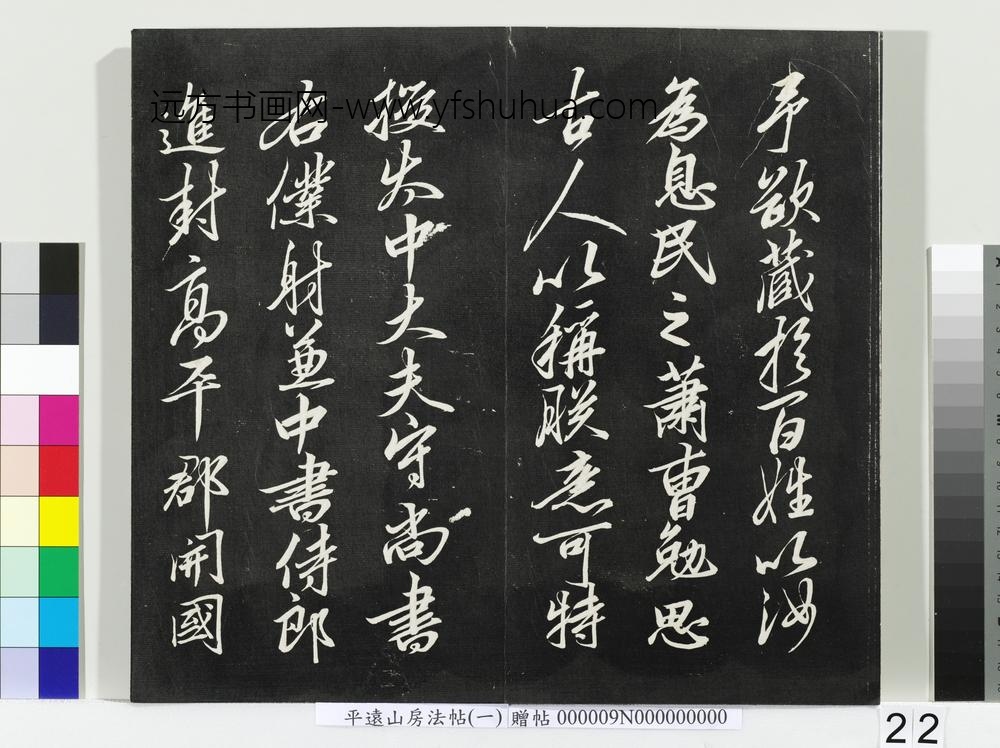 予欲藏於百姓以汝
為息民之蕭曹勉思
古人以稱朕意可特
授太中大夫守尚書
右僕射兼中書侍郎
進封高平郡開國
远方书画网-www.yfshuhua.com
平遠山房法帖(一) 贈帖 000009N000000000
22